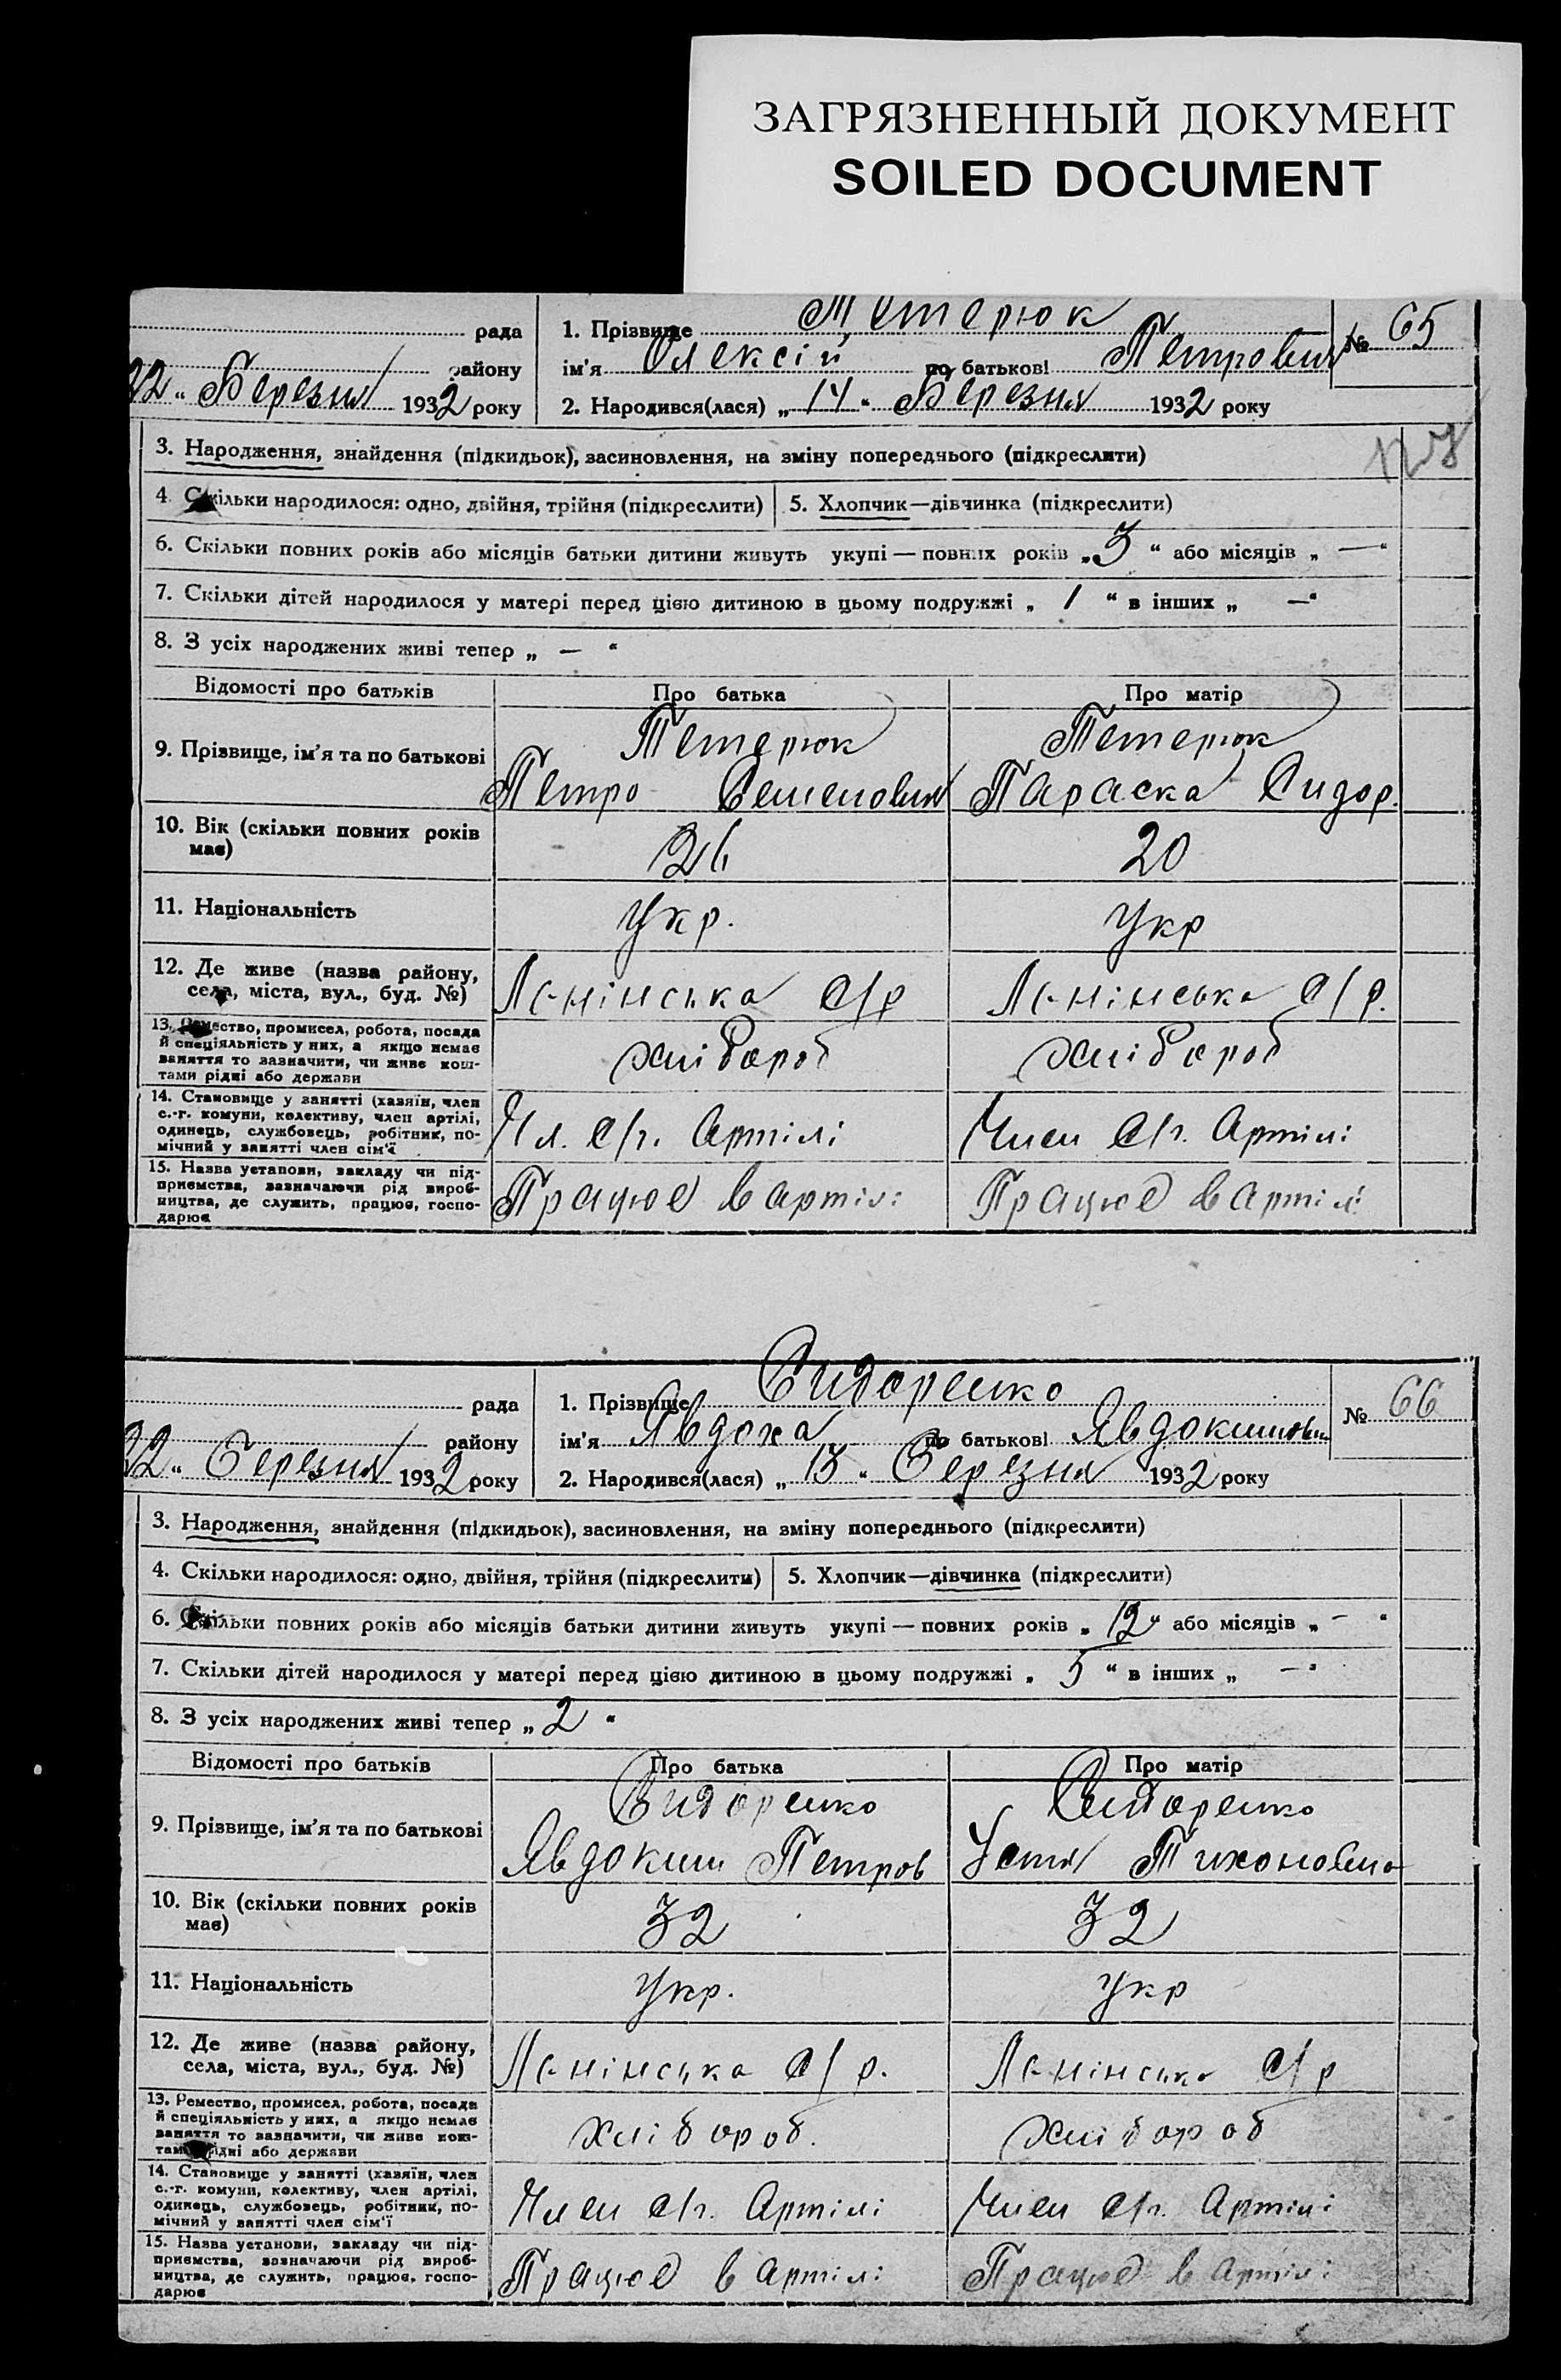 ЗАГРЯЗНЕННЫЙ ДОКУМЕНТ
SOILED DOCUMENT
рада
району
22 " Березня 1932 року
1. Прізвище Тетерюк
ім'я Олексій по батькові Петрович
2. Народився(лася) „ 14 " Березня 1932 року
№ 65
3. Народження, знайдення (підкидьок), засиновлення, на зміну попереднього (підкреслити)
4. Скільки народилося: одно, двійня, трійня (підкреслити) 5. Хлопчик—дівчинка (підкреслити)
6. Скільки повних років або місяців батьки дитини живуть укупі — повних років „ 3 " або місяців „ — "
7. Скільки дітей народилося у матері перед цією дитиною в цьому подружжі „ 1 " в інших „ — "
8. З усіх народжених живі тепер „ — "
Відомості про батьків Про батька Про матір
9. Прізвище, ім'я та по батькові
Тетерюк Петро Семенович
Тетерюк Параска Сидор.
10. Вік (скільки повних років має) 26 20
11. Національність Укр. Укр
12. Де живе (назва району, села, міста, вул., буд. №)
Ленінська с/р
Ленінська с/р.
13. Ремество, промисел, робота, посада
й спеціяльність у них, а якщо немає
заняття то зазначити, чи живе кош-
тами рідні або держави
хлібороб
хлібороб
14. Становище у занятті (хазяїн, член
с.-г. комуни, колективу, член артілі,
одинець, службовець, робітник, по-
мічний у занятті член сім'ї
Чл. с/г. Артілі
Член с/г. Артілі
15. Назва установи, закладу чи під-
приємства, зазначаючи рід вироб-
ництва, де служить, працює, госпо-
дарює
Працює в артілі
Працює в артілі
рада
району
22 " Березня 1932 року
1. Прізвище Сидоренко
ім'я Явдоха по батькові Явдокимовн
2. Народився(лася) „ 13 " Березня 1932 року
№ 66
3. Народження, знайдення (підкидьок), засиновлення, на зміну попереднього (підкреслити)
4. Скільки народилося: одно, двійня, трійня (підкреслити) 5. Хлопчик—дівчинка (підкреслити)
6. Скільки повних років або місяців батьки дитини живуть укупі — повних років „ 12 " або місяців „ — "
7. Скільки дітей народилося у матері перед цією дитиною в цьому подружжі „ 5 " в інших „ — "
8. З усіх народжених живі тепер „ 2 "
Відомості про батьків Про батька Про матір
9. Прізвище, ім'я та по батькові
Сидоренко Явдоким Петров
Сидоренко Устя Тихоновна
10. Вік (скільки повних років має) 32 32
11. Національність Укр. Укр
12. Де живе (назва району, села, міста, вул., буд. №)
Ленінська с/р.
Ленінська с/р
13. Ремество, промисел, робота, посада
й спеціяльність у них, а якщо немає
заняття то зазначити, чи живе кош-
тами рідні або держави
хлібороб.
хлібороб
14. Становище у занятті (хазяїн, член
с.-г. комуни, колективу, член артілі,
одинець, службовець, робітник, по-
мічний у занятті член сім'ї
Член с/г. Артілі
Член с/г. Артілі
15. Назва установи, закладу чи під-
приємства, зазначаючи рід вироб-
ництва, де служить, працює, госпо-
дарює
Працює в артілі
Працює в артілі